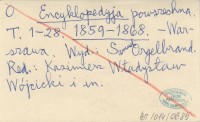 O Encyklopedyja powszechna.
T. 1-28. 1859-1868. - War-
szawa. Wyd: Sam. Orgelbrand.
Red.: Kazimierz Władysław
Wójcicki i in.